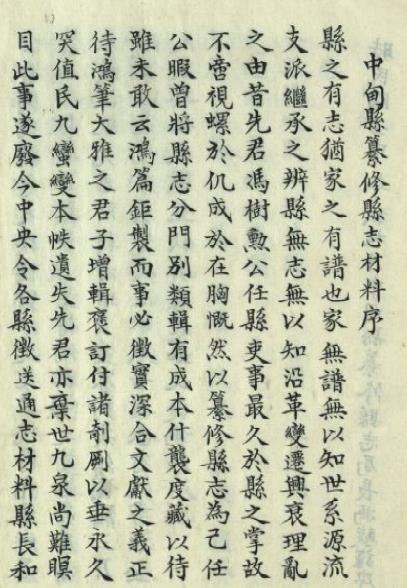 中甸縣纂修縣志材料序
縣之有志猶家之有譜也家無譜無以知世系源流
支派繼承之辨縣無志無以知沿革變遷興衰理亂
之由昔先君馮樹勳公任縣吏事最久於縣之掌故
不啻視螺於几成於在胸慨然以纂修縣志為己任
公暇曾將縣志分門別類輯有成本什襲度藏以待
雖未敢云鴻篇鉅製而事必徵實深合文獻之義正
待鴻筆大雅之君子增輯褒訂付諸剞劂以垂永久
突值民九蠻變本帙遺失先君亦棄世九泉尚難瞑
目此事遂廢今中央令各縣徵送通志材料縣長和